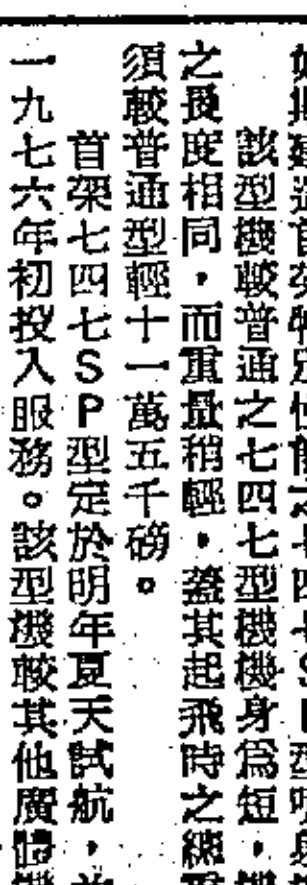 該型機較普通之七四七型機機身爲短，機
之長度相同，而重量稍輕，蓋其起飛時之總重
須較普通型輕十一萬五千磅。
首架七四七SP型定於明年夏天試航，並
一九七六年初投入服務。該型機較其他廣體機